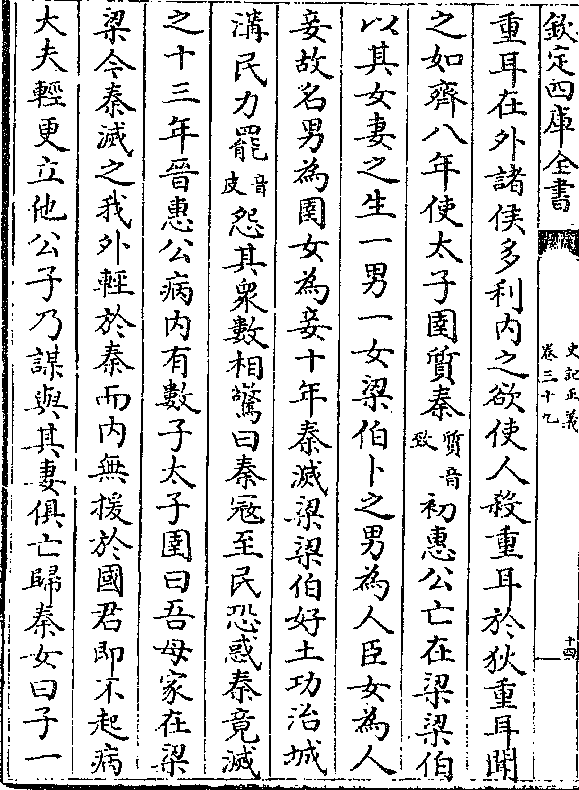 欽定四庫全書
史記正義
卷三十九
十四
重耳在外諸侯多利内之欲使人殺重耳於狄重耳聞
之如齊八年使太子圉質秦質音致初惠公亡在梁梁伯
以其女妻之生一男一女梁伯卜之男為人臣女為人
妾故名男為圉女為妾十年秦滅梁梁伯好土功治城
溝民力罷音皮怨其衆數相驚曰秦冦至民恐惑秦竟滅
之十三年晉惠公病内有數子太子圉曰吾母家在梁
梁今秦滅之我外輕於秦而内無援於國君即不起病
大夫輕更立他公子乃謀與其妻俱亡歸秦女曰子一